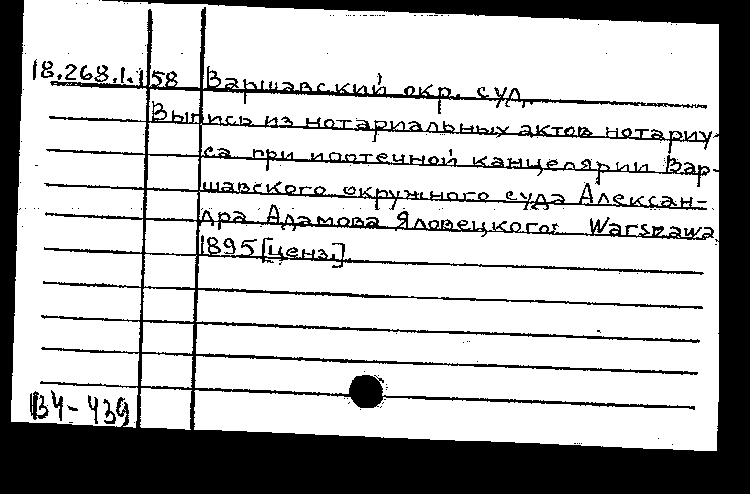 18.268.1.158 Варшавский окр. суд.
Выпись из нотариальных актов нотариу-
са при ипотечной канцелярии Вар-
шавского окружного суда Алексан-
дра Адамова Яловецкого: Warszawa
1895 [ценз.].
В4-439